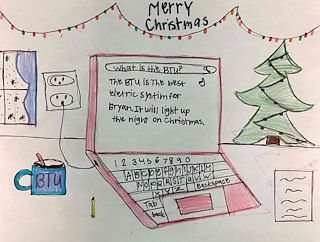 Merry
Christmas
What is the BTU?
The BTU is the best
eletric systim for
Bryan. It will light up
the night on Christmas.
1 2 3 4 5 6 7 8 9 0
Backspace
Tab
BTU